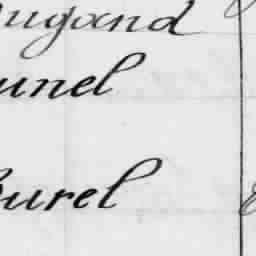 ugand
unel
urel